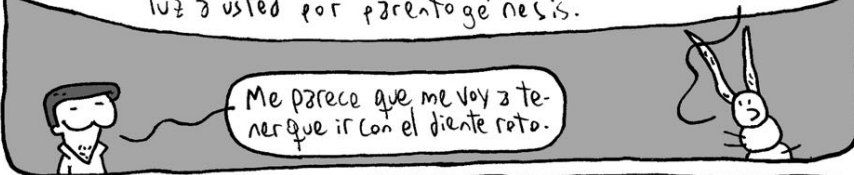 luz a usted por parentogénesis.
Me parece que me voy a te-
ner que ir con el diente roto.